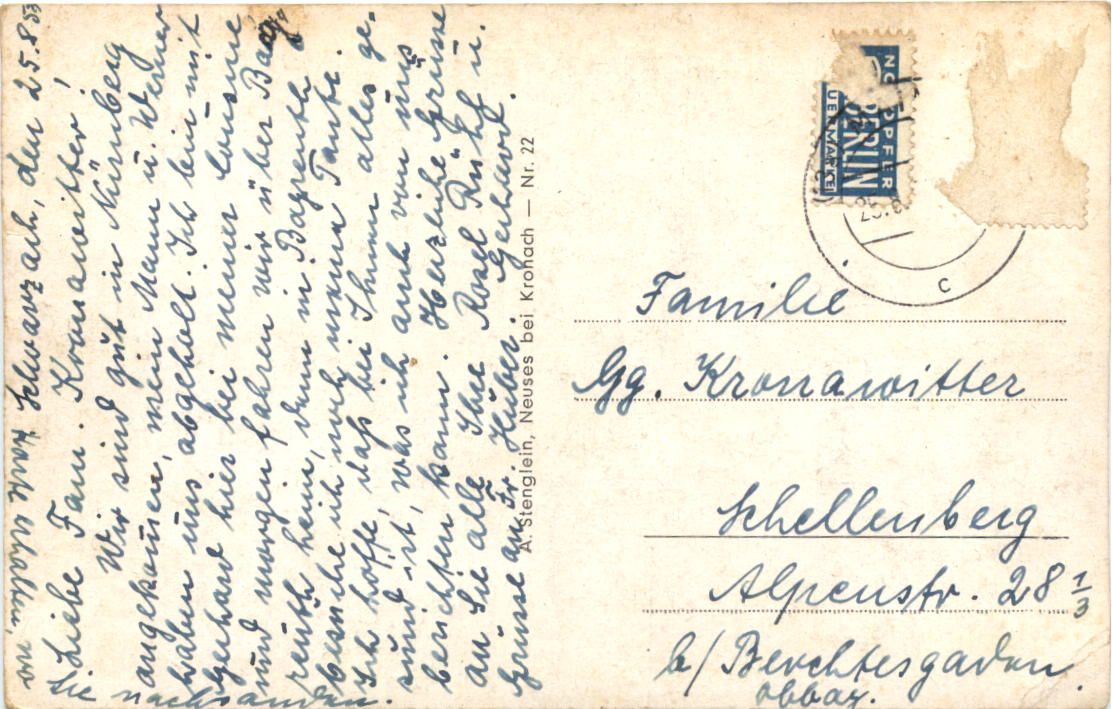 Schwarzach, den 25.8.53
Liebe Fam. Kronawitter!
Wir sind gut in Nürnberg
angekomen, mein Mann u. Werner
haben uns abgeholt. Ich bin mit
Gerhard hier bei meiner Cousine,
und morgen fahren wir über Bay
reuth heim, denn in Bayreuth
besuche ich noch meine Tante.
Ich hoffe, daß bei Ihnen alles ge-
sund ist, was ich auch von uns
berichten kann. Herzliche Grüsse
an Sie alle Ihre Rosel Rühl u.
Grüsse an Fr. Huber. Gerhard.
Karte erhalten, wo
Sie nachsanden.
A. Stenglein, Neuses bei Kronach — Nr. 22
NOTOPFER
BERLIN
STEUERMARKE
25.8.
c
Familie
Gg. Kronawitter
Schellenberg
Alpenstr. 28 1/3
b/ Berchtesgaden
Obbay.